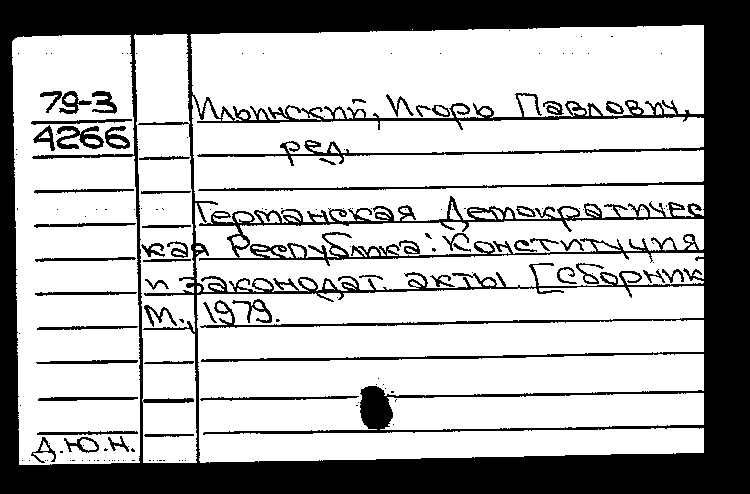 79-3
4266
Ильинский, Игорь Павлович,
ред.
Германская Демократичес
кая Республика: Конституция
и законодат. акты [Сборник
М., 1979.
Д.Ю.Н.